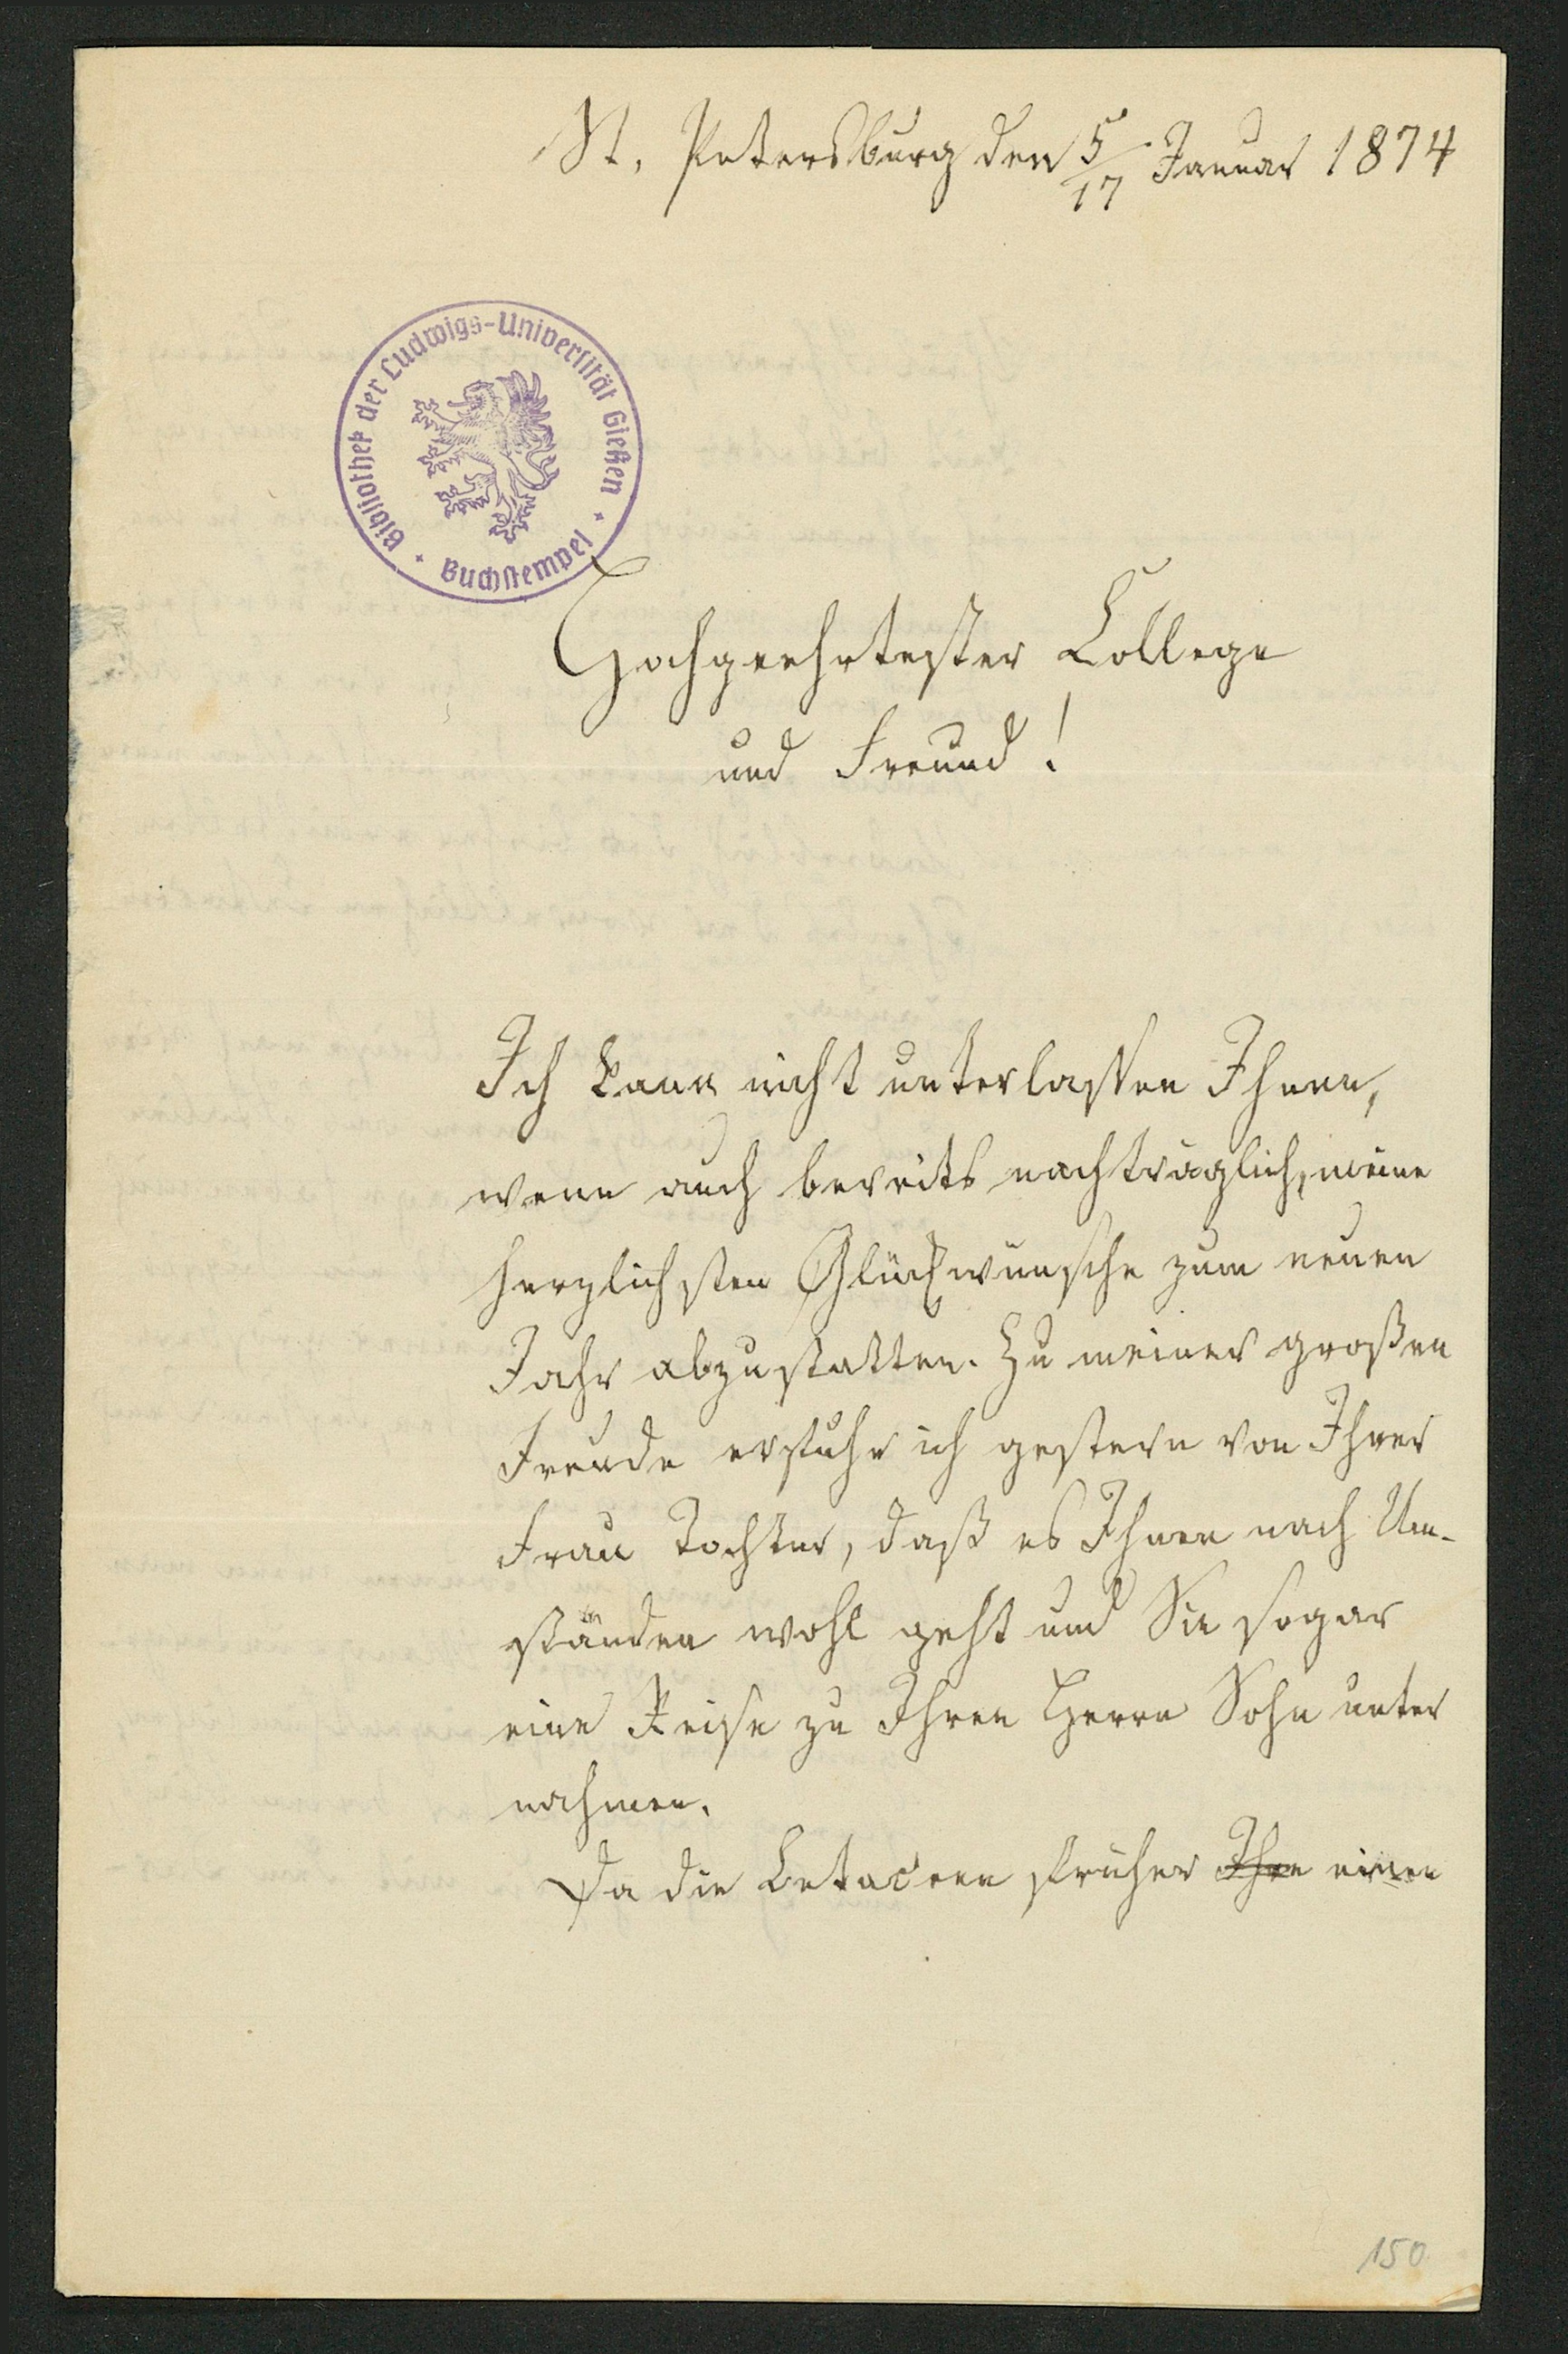 St. Petersburg den 5/17 Januar 1874
Bibliothek der Ludwigs-Universität Gießen
Buchstempel
Hochgeehrtester College
und Freund!
Ich kann nicht unterlassen Ihnen,
wenn auch bereits nachträglich, meine
herzlichsten Glückwünsche zum neuen
Jahr abzustatten. Zu meiner großen
Freude erfuhr ich gestern von Ihrer
Frau Tochter, daß es Ihnen nach Um-
ständen wohl geht und Sie sogar
eine Reise zu Ihren Herrn Sohn unter
nahmen.
Da die Cetaceen früher Ihre einen
150